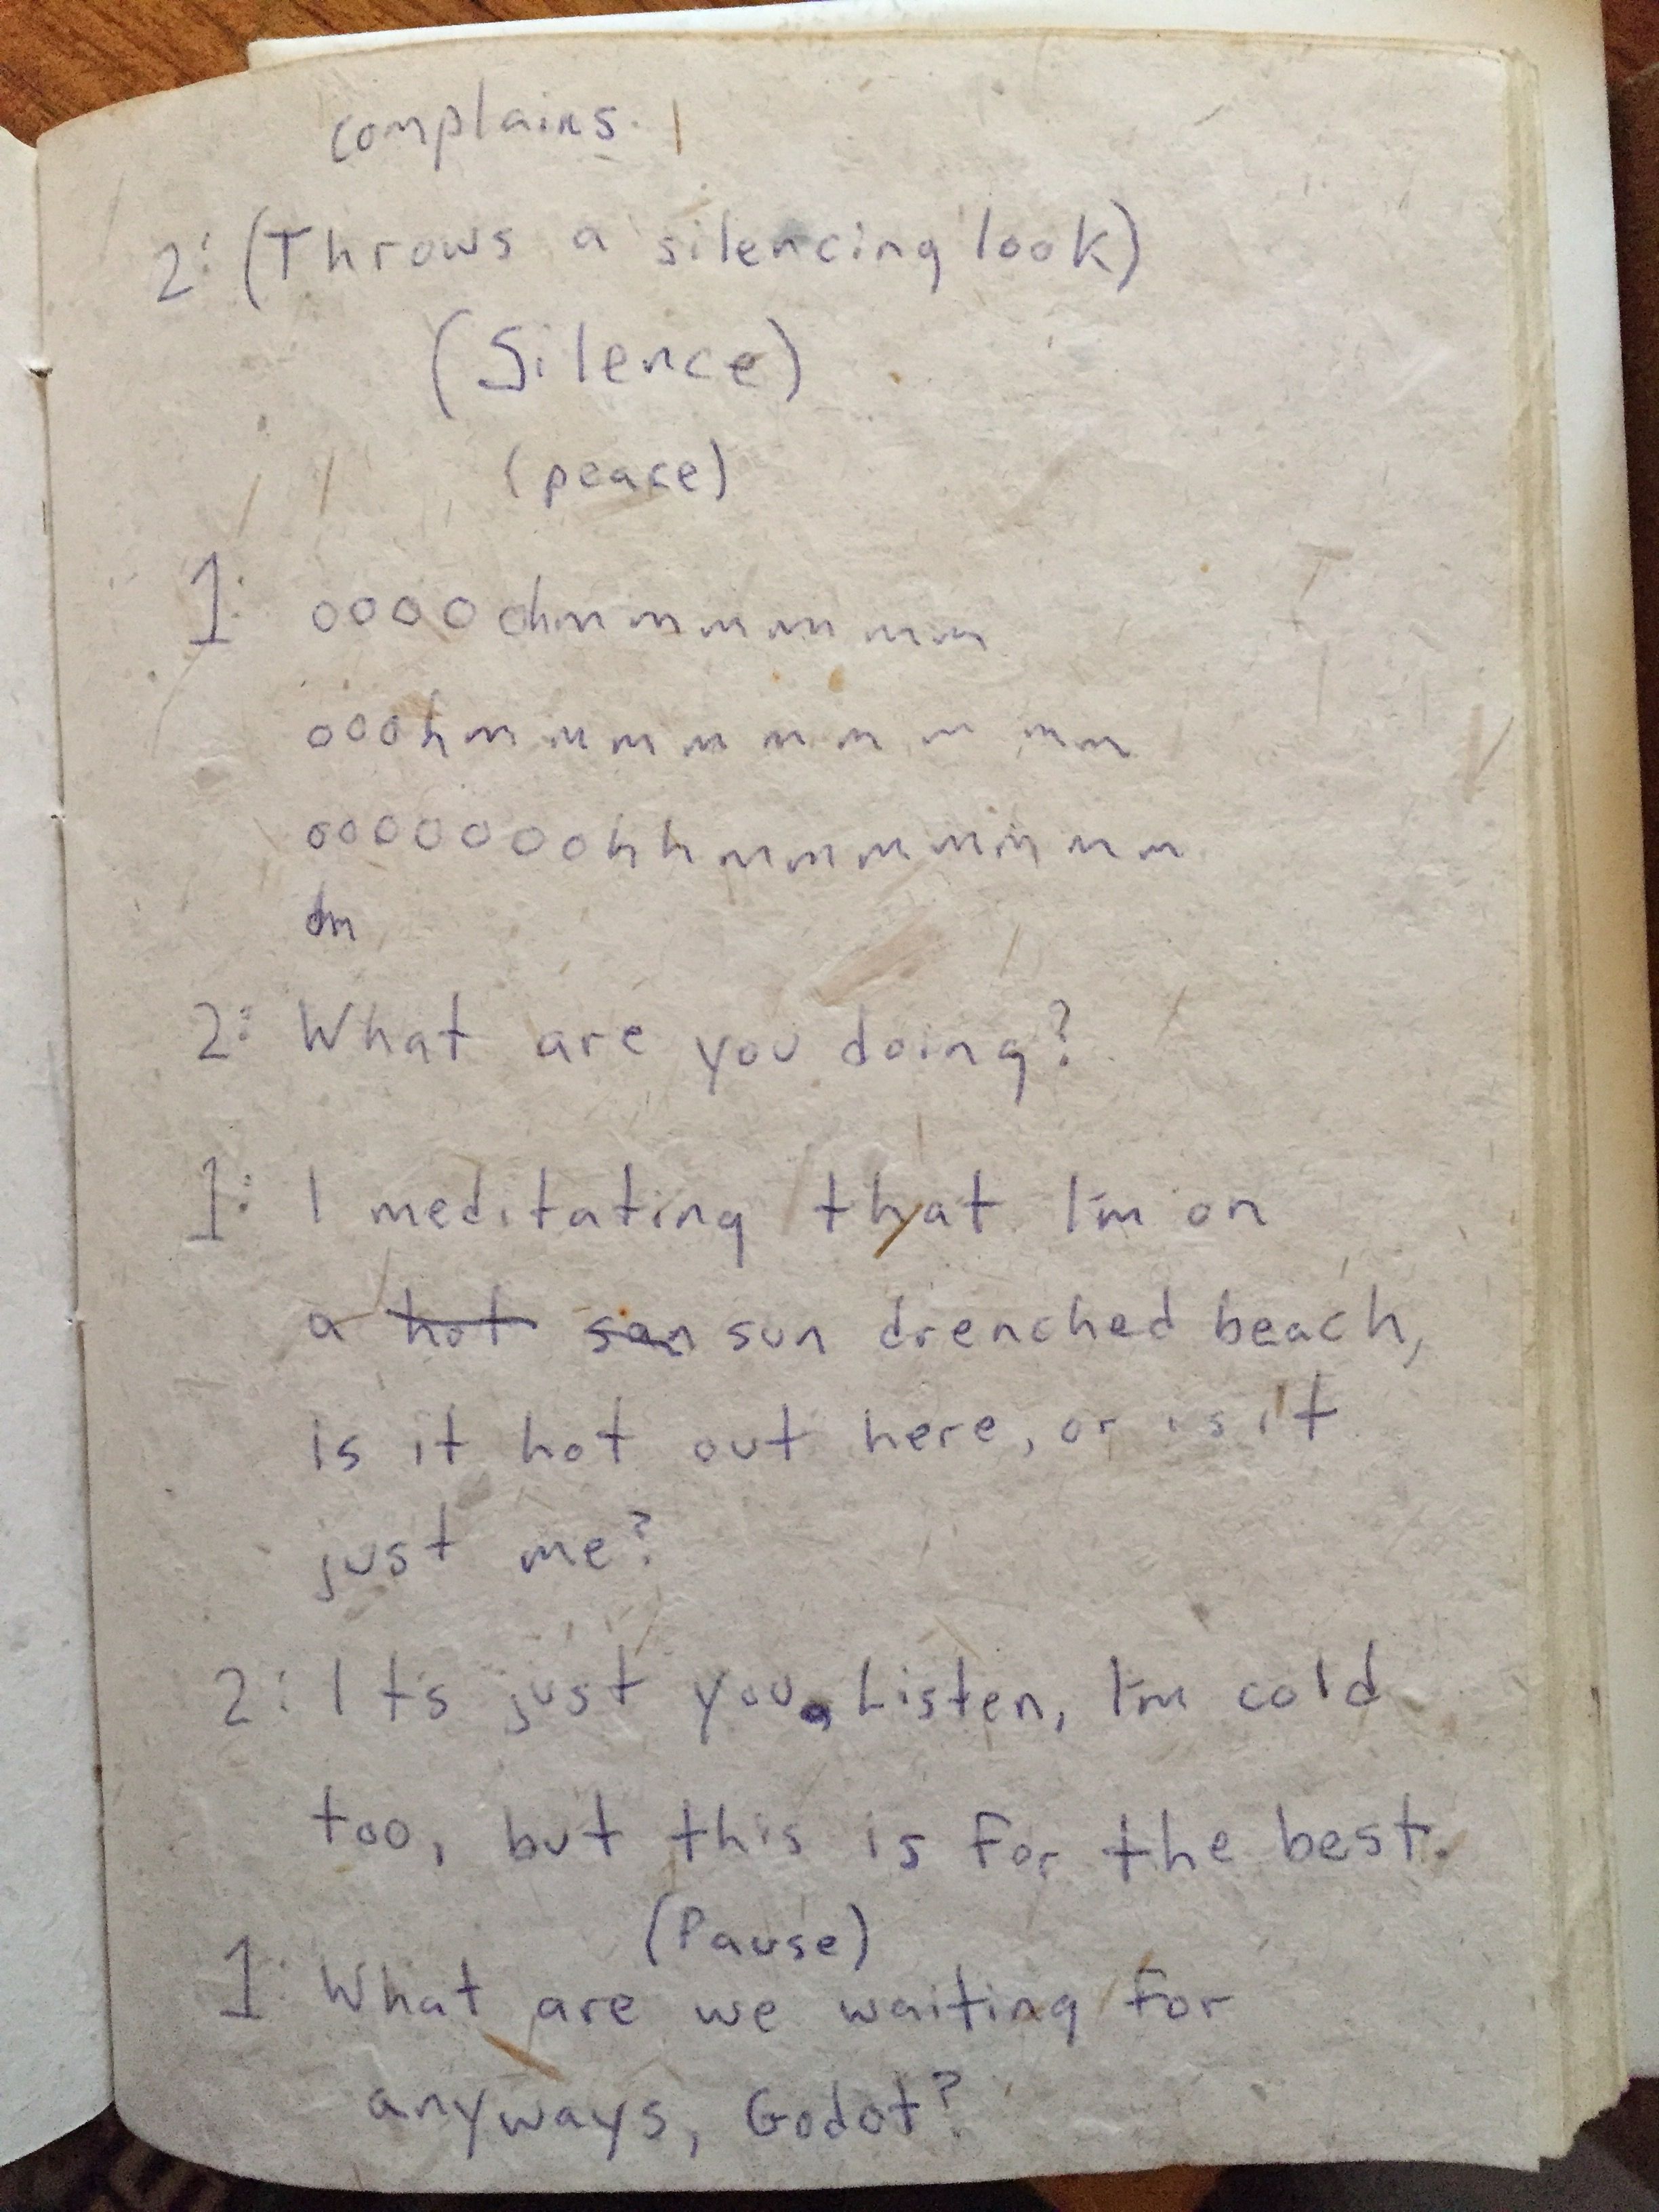 complains.
2: (Throws a silencing look)
(Silence)
(peace)
1: oooo ohmmmmmmm
ooohmmmmmmmmm
ooooooohhmmmmmmmm
2: What are you doing?
1: I meditating that I'm on
a hot san sun drenched beach,
is it hot out here, or is it
just me?
2: It's just you. Listen, I'm cold
too, but this is for the best.
(Pause)
1: What are we waiting for
anyways, Godot?